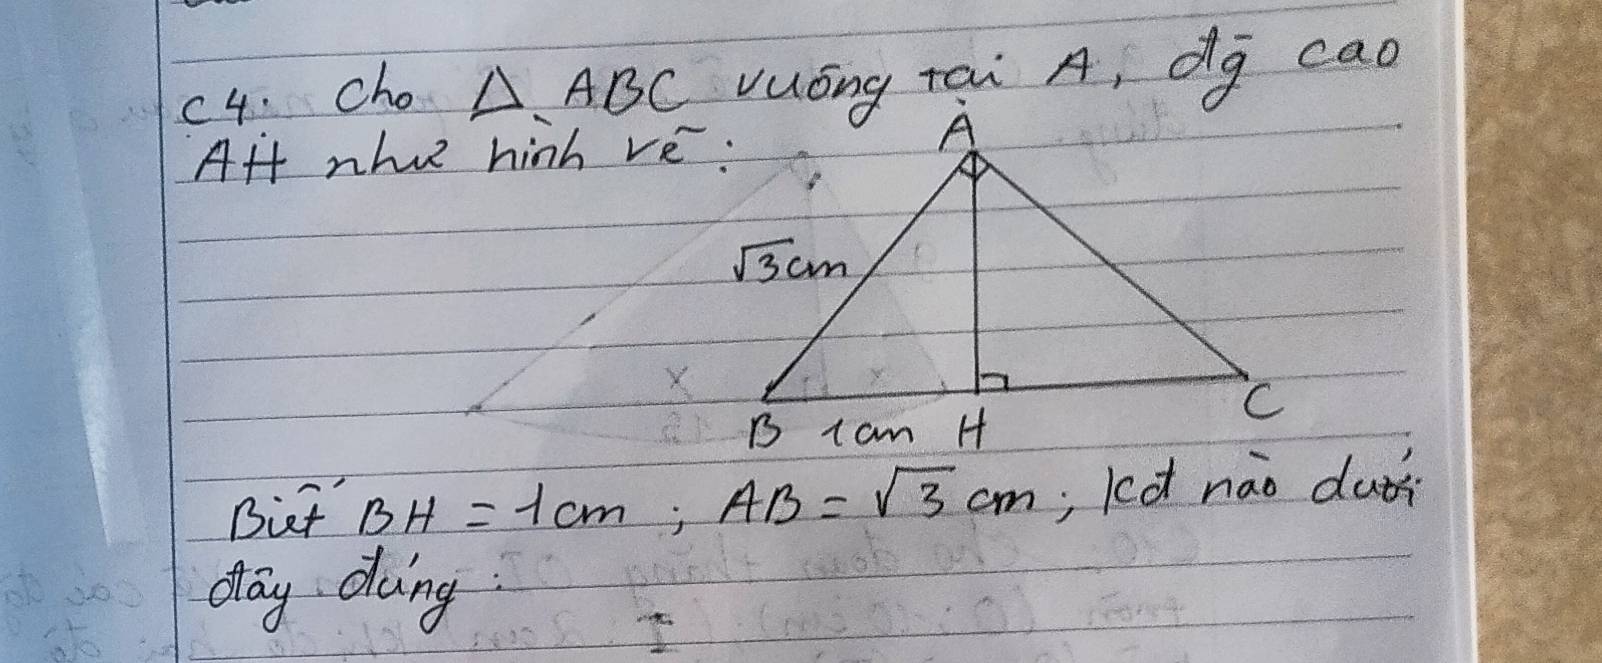 C4. Cho Δ ABC vuông tại A, đg cao
AH như hình vẽ:
A
√3cm
B 1cm H
C
Biết BH = 1cm; AB = √3 cm; kđ nào dưới
đây đúng: